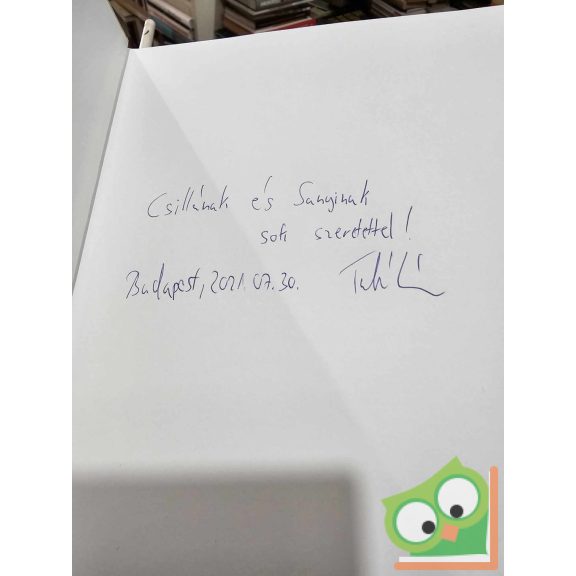 Csillának és Sanyinak
sok szeretettel!
Budapest, 2021.07.30.